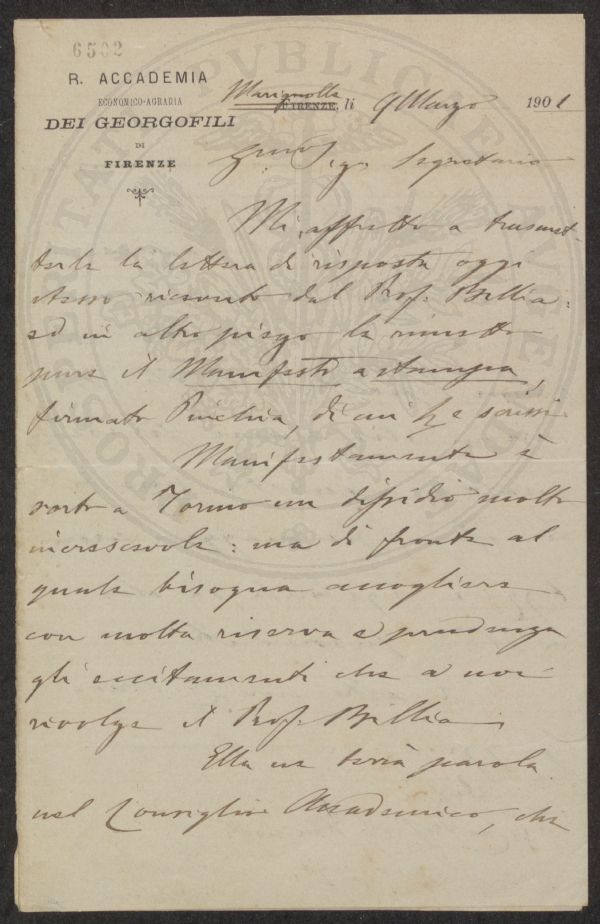 6502
R. ACCADEMIA
ECONOMICO-AGRARIA
DEI GEORGOFILI
DI
FIRENZE
Marignolle
FIRENZE, li 9 Marzo 1901
Sig. Segretario
Mi affretto a trasmet-
terle la lettera di risposta oggi
stesso ricevuto dal Prof. Billia:
ed in altro piego le rimetto
pure il Manifesto a stampa,
firmato Pinchia, di cui Le scrissi.
Manifestamente è
sorto a Torino un dissidio molto
increscevole: ma di fronte al
quale bisogna accogliere
con molta riserva e prudenza
gli eccitamenti che a noi
rivolge il Prof. Billia.
Ella ne terrà parola
nel Consiglio Accademico, che